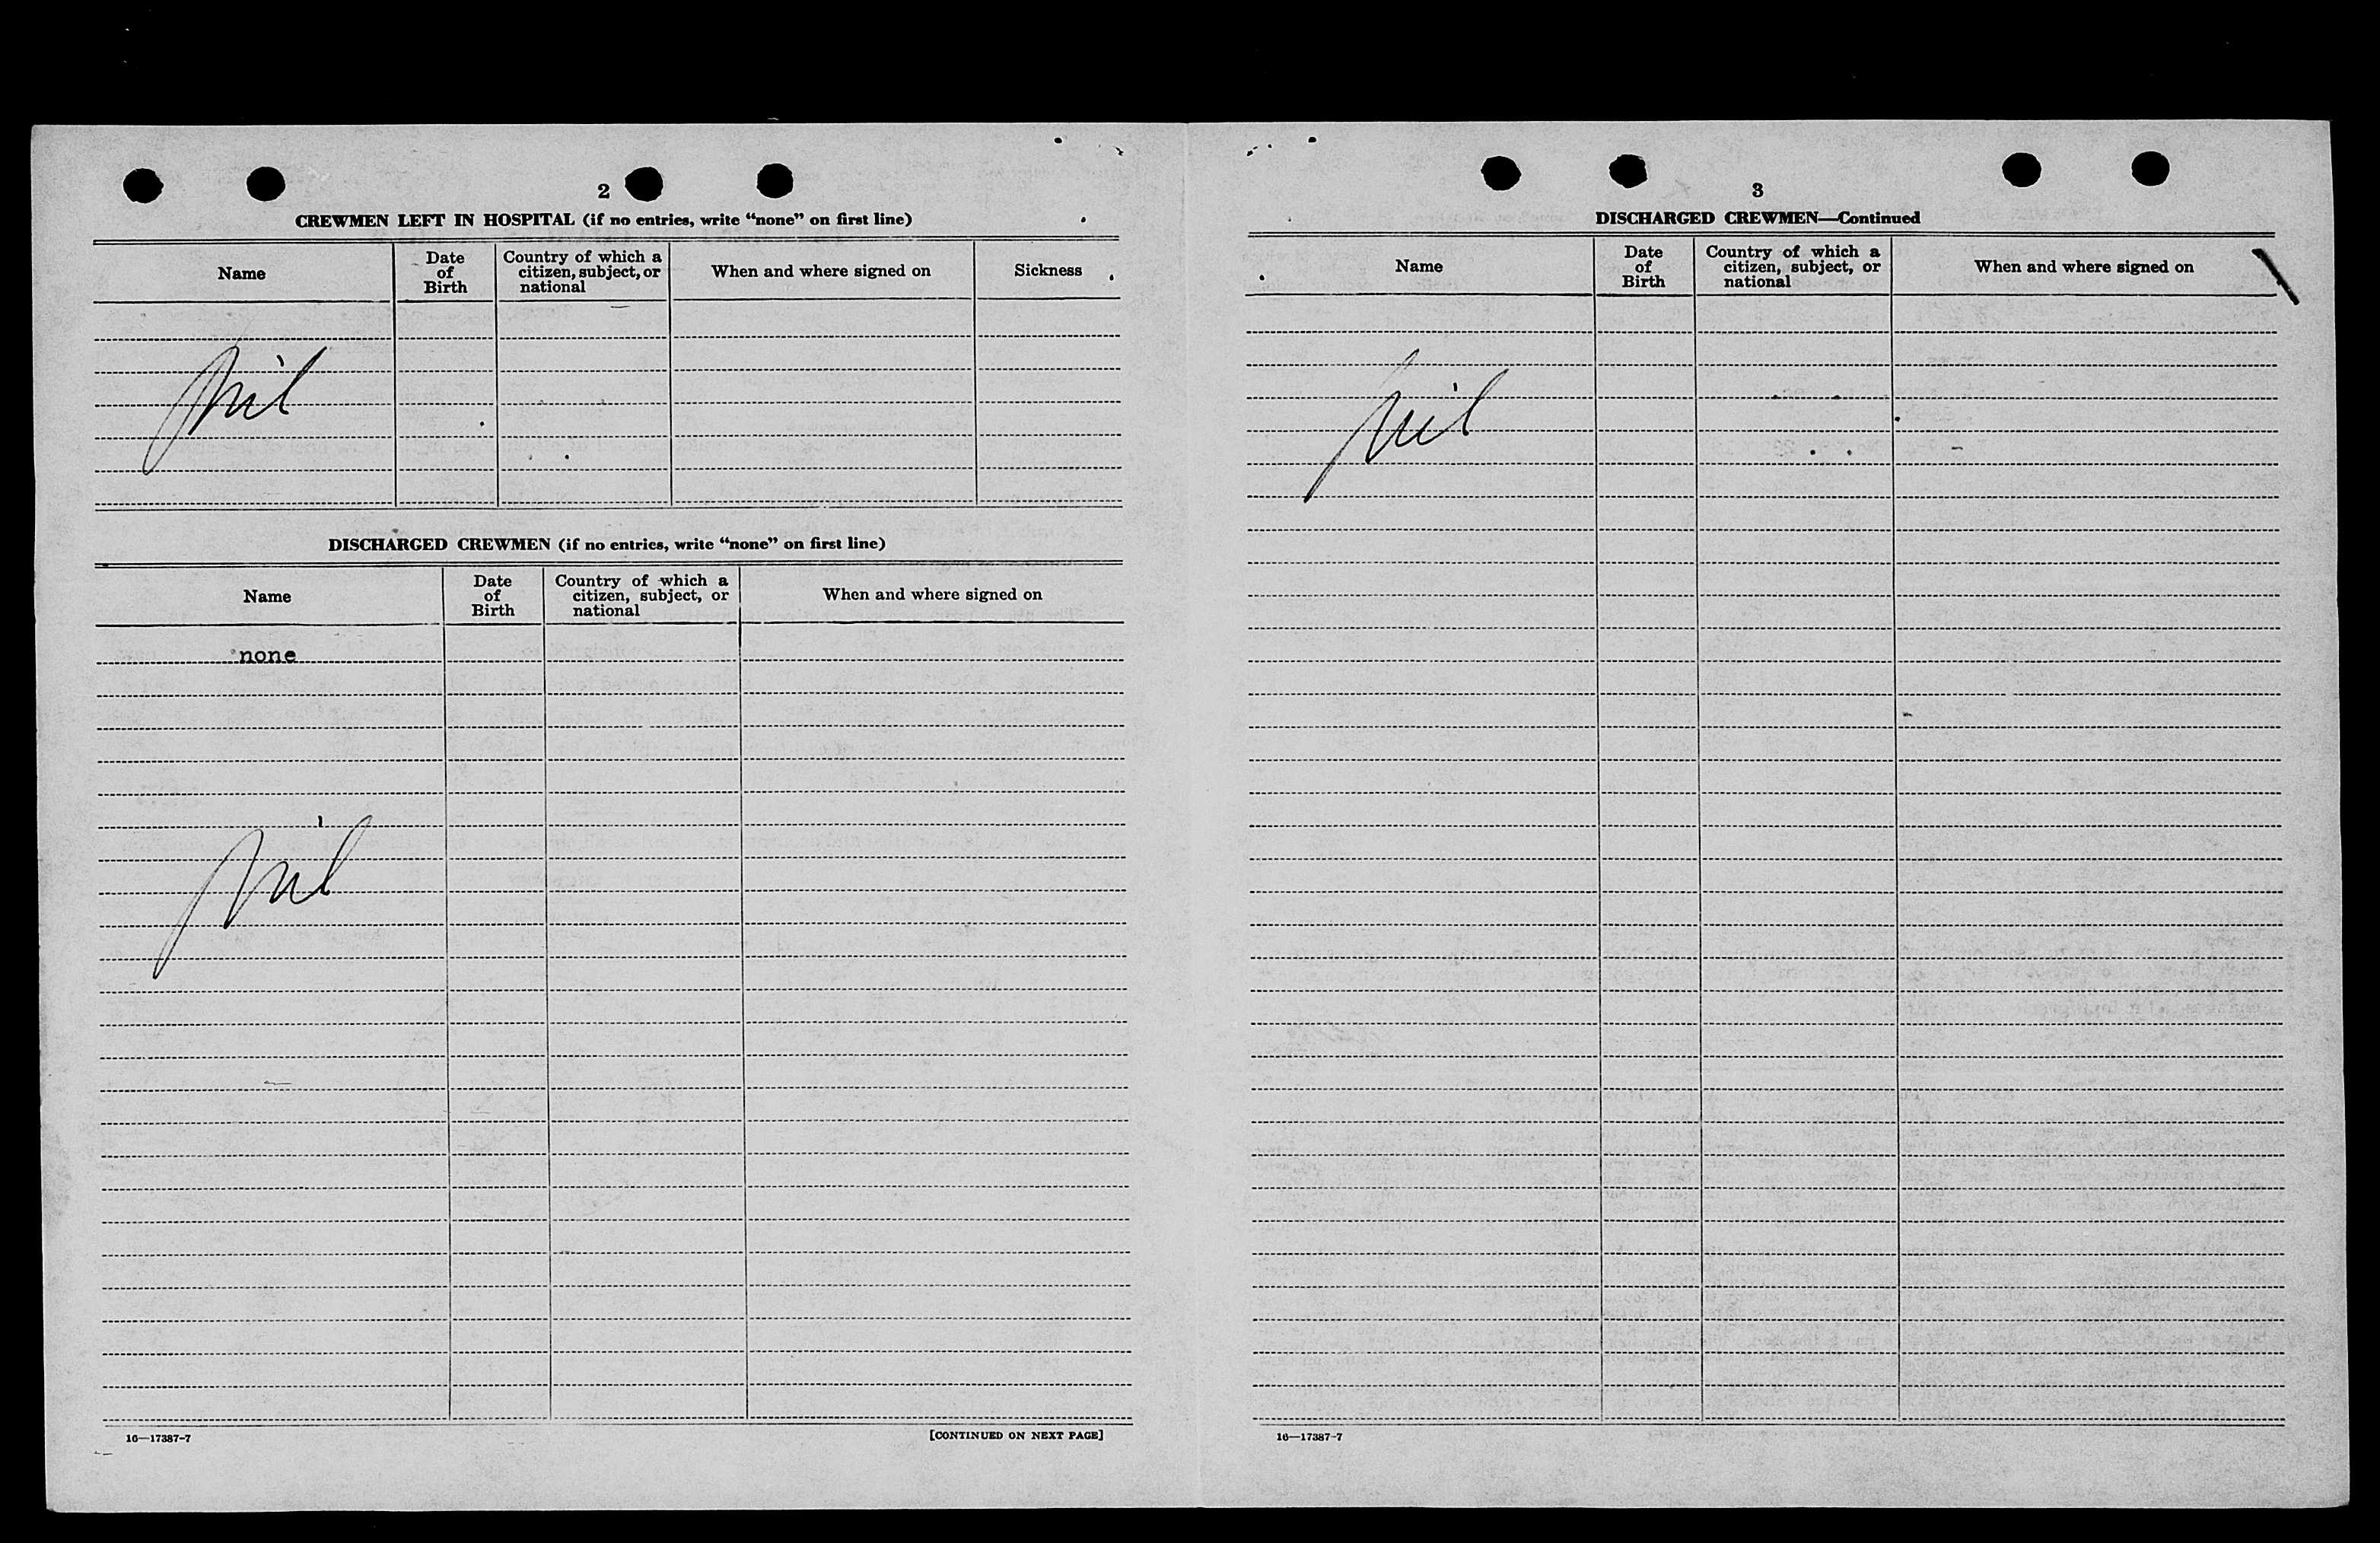 2
CREWMEN LEFT IN HOSPITAL (if no entries, write “none” on first line)
Name
Date of Birth
Country of which a citizen, subject, or national
When and where signed on
Sickness
Nil
DISCHARGED CREWMEN (if no entries, write “none” on first line)
Name
Date of Birth
Country of which a citizen, subject, or national
When and where signed on
none
Nil
16—17387-7
[CONTINUED ON NEXT PAGE]
3
DISCHARGED CREWMEN—Continued
Name
Date of Birth
Country of which a citizen, subject, or national
When and where signed on
Nil
16—17387-7